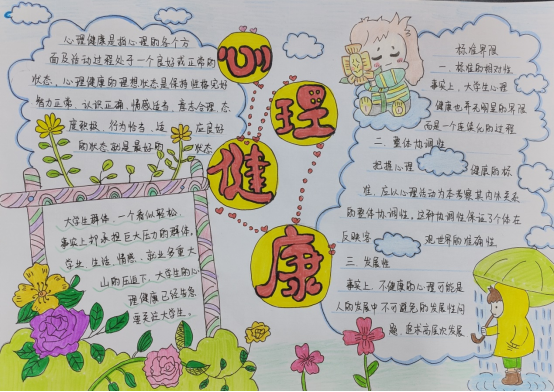 心理健康
心理健康是指心理的各个方
面及活动过程处于一个良好或正常的
状态。心理健康的理想状态是保持性格完好
智力正常、认识正确、情感适当、意志合理、态
度积极、行为恰当、适应良好
的状态
大学生群体,一个看似轻松,
事实上打承担巨大压力的群体,
学业、生活、情感、就业多重大
山的压迫下,大学生的心
理健康已经
大学生。
标准界限
一、标准的相对性
事实上,大学生心理
健康也并无明显的界限
而是一个连续化的过程
二、整体协调性
把握心理 健康的标
准,应以心理活动为本考察其内外关系
的整体协调性,这种协调性保证了个体在
反映客 观世界的准确性
三、发展性
事实上,不健康的心理可能是
人的发展中不可避免的发展性问
题,